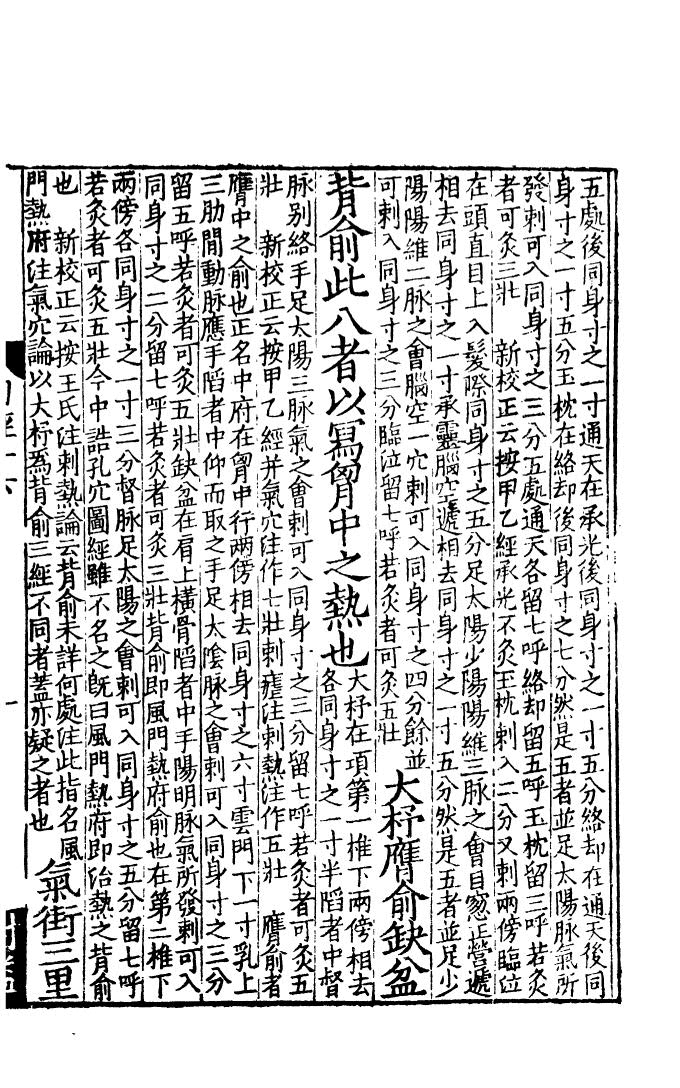 五處後同身寸之一寸通天在承光後同身寸之一寸五分絡却在通天後同
身寸之一寸五分玉枕在絡却後同身寸之七分然是五者並足太陽脉氣所
發刺可入同身寸之三分五處通天各留七呼絡却留五呼玉枕留三呼若灸
者可灸三壯　新校正云按甲乙經承光不灸玉枕刺入二分又刺兩傍臨泣
在頭直目上入髮際同身寸之五分足太陽少陽陽維三脉之會目窓正營遞
相去同身寸之一寸承靈腦空遞相去同身寸之一寸五分然是五者並足少
陽陽維二脉之會腦空一穴刺可入同身寸之四分餘並
可刺入同身寸之三分臨泣留七呼若灸者可灸五壯
大杼膺俞缺盆
背俞此八者以寫胷中之熱也
大杼在項第一椎下兩傍相去
各同身寸之一寸半䧟者中督
脉别絡手足太陽三脉氣之會刺可入同身寸之三分留七呼若灸者可灸五
壯　新校正云按甲乙經并氣穴注作七壯刺瘧注刺熱注作五壯　膺俞者
膺中之俞也正名中府在胷中行兩傍相去同身寸之六寸雲門下一寸乳上
三肋間動脉應手䧟者中仰而取之手足太陰脉之會刺可入同身寸之三分
留五呼若灸者可灸五壯缺盆在肩上橫骨䧟者中手陽明脉氣所發刺可入
同身寸之二分留七呼若灸者可灸三壯背俞即風門熱府俞也在第二椎下
兩傍各同身寸之一寸三分督脉足太陽之會刺可入同身寸之五分留七呼
若灸者可灸五壯今中誥孔穴圖經雖不名之旣曰風門熱府即治熱之背俞
也　新校正云按王氏注刺熱論云背俞未詳何處注此指名風
門熱府注氣穴論以大杼爲背俞三經不同者蓋亦疑之者也
氣街三里